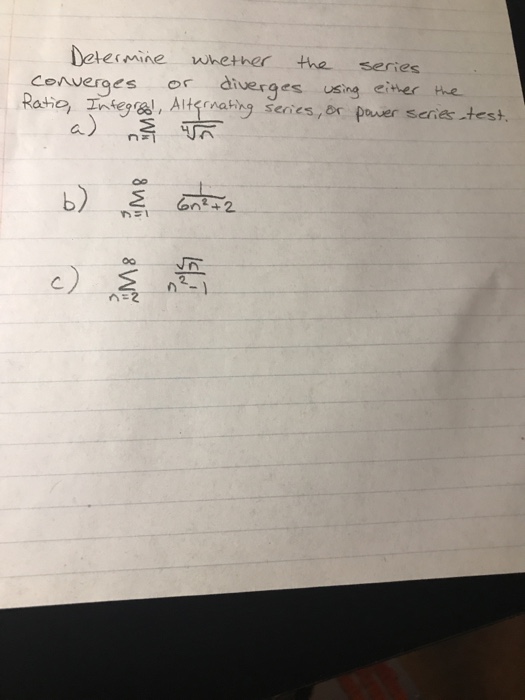 Determine whether the series
converges or diverges using either the
Ratio, Integral, Alternating series, or power series test.
a) ∞ Σ n=1 1/∜n
b) ∞ Σ n=1 1/(6n²+2)
c) ∞ Σ n=2 √n/(n²-1)